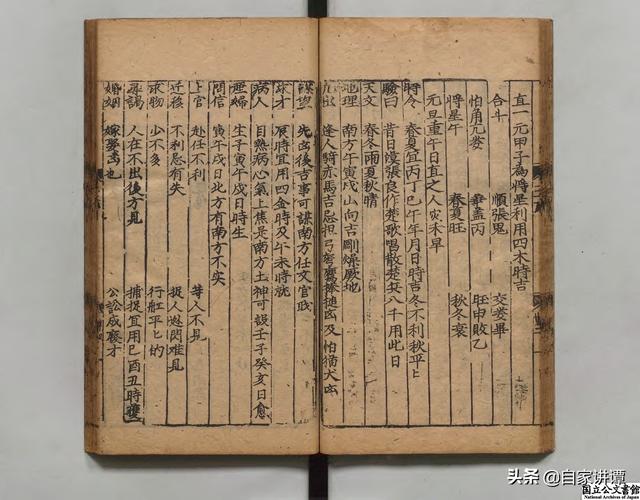 直一元甲子為將星利用四木時吉
合斗 順張鬼 交婁畢
怕角亢婁 畢蓋丙 旺申敗乙
將星午 春夏旺 秋冬衰
元旦重午日直之人灾禾旱
時令 春夏宜丙丁巳午年月日時吉冬不利秋平平
驗曰 昔日漢張良作楚歌唱散楚兵八千用此日
天文 春冬雨夏秋晴
地理 南方午寅戍山向吉剛燥厥地
逢人騎赤馬吉忌担弓及怕猫犬凶
謀望 先凶後吉事可謀南方任文官戝
求才 辰時宜用四金時及午未時就
病人 目熱病心氣上焦是南方土神可設壬子癸亥日愈
産婦 生子寅午戍日時生
問信 寅午戍日北方有南方不实
上官 赴任不利 尋人不見
近移 不利忌有失 捉人閃难見
求物 少不多 行舡平平的
尋謁 人在不出後方見 捕捉宜用巳酉丑時獲
婚姻 嫁娶高也 公訟成廢才
头条 @自家讲谭
国立公文書館
National Archives of Japan